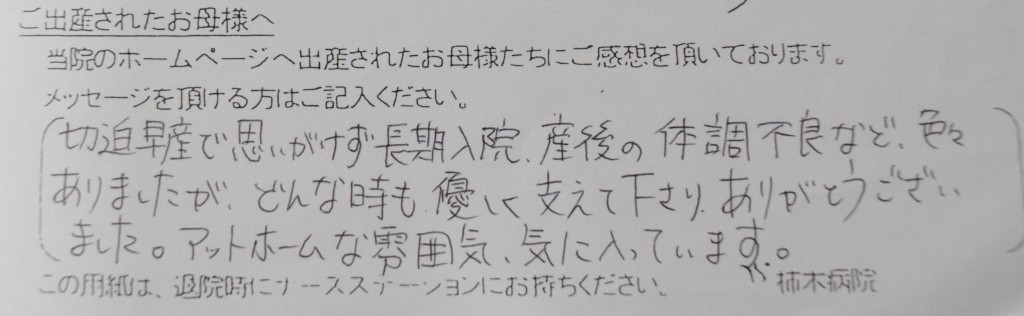 ご出産されたお母様へ
当院のホームページへ出産されたお母様たちにご感想を頂いております。
メッセージを頂ける方はご記入ください。
切迫早産で思いがけず長期入院、産後の体調不良など、色々
ありましたが、どんな時も優しく支えて下さり、ありがとうござい
ました。アットホームな雰囲気、気に入っています。
この用紙は、退院時にナースステーションにお持ちください。 柿木病院